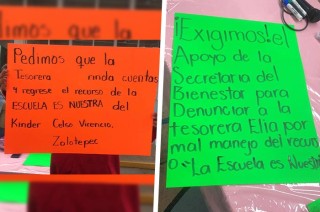 Pedimos que la
Tesorera rinda cuentas
y regrese el recurso de la
ESCUELA ES NUESTRA del
Kinder Celso Vicencio.
Zolotepec
¡Exigimos! el
Apoyo de la
Secretaria del
Bienestar para
Denunciar a la
tesorera Elia por
mal manejo del recurso
"La Escuela es Nuestra